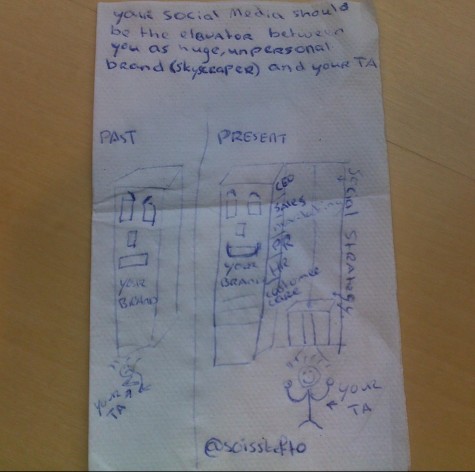 your social media should
be the elevator between
you as huge, unpersonal
brand (skyscraper) and your TA
PAST
PRESENT
YOUR
BRAND
YOUR
TA
YOUR
BRAND
CEO
SALES
PR
HR
CUSTOMER
CARE
SOCIAL STRATEGY
YOUR
TA